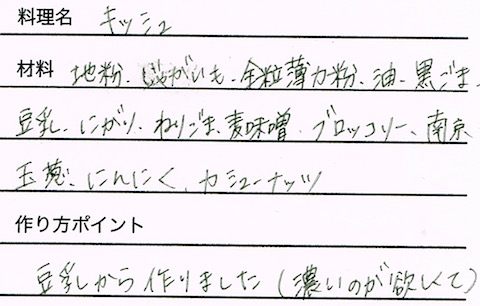 料理名 キッシュ
材料 地粉、じゃがいも、全粒薄力粉、油、黒ごま、
豆乳、にがり、ねりごま、麦味噌、ブロッコリー、南京
玉葱、にんにく、カシューナッツ
作り方ポイント
豆乳から作りました(濃いのが欲しくて)